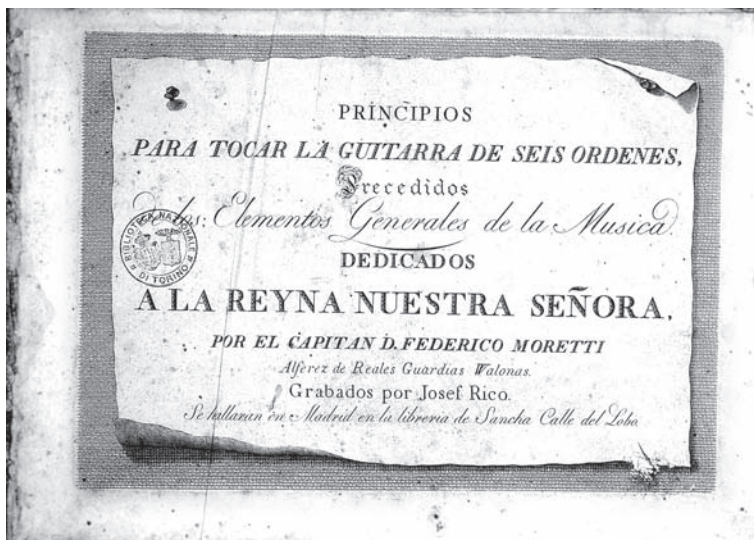 PRINCIPIOS
PARA TOCAR LA GUITARRA DE SEIS ORDENES,
Precedidos
de los Elementos Generales de la Musica
DEDICADOS
A LA REYNA NUESTRA SEÑORA,
POR EL CAPITAN D. FEDERICO MORETTI
Alferez de Reales Guardias Walonas.
Grabados por Josef Rico.
Se hallaran en Madrid en la libreria de Sancha Calle del Lobo
BIBLIOTECA NAZIONALE
DI TORINO